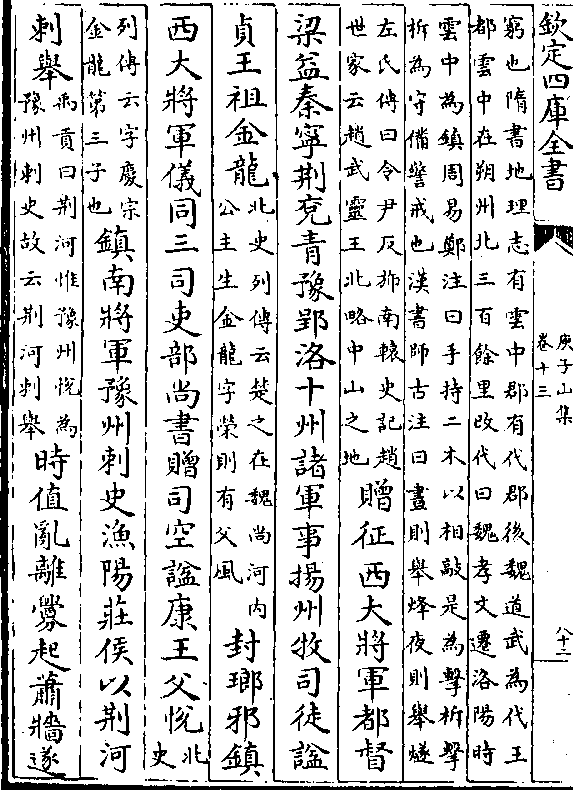 欽定四庫全書
庾子山集
卷十三
八十二
窮也隋書地理志有雲中郡有代郡後魏道武為代王
都雲中在朔州北三百餘里改代曰魏孝文遷洛陽時
雲中為鎮周易鄭注曰手持二木以相敲是為擊柝擊
柝為守備警戒也漢書師古注曰晝則舉烽夜則舉燧
左氏傳曰令尹反旆南轅史記趙
世家云趙武靈王北略中山之地
贈征西大將軍都督
梁益秦寧荆兖青豫郢洛十州諸軍事揚州牧司徒諡
貞王祖金龍
北史列傳云楚之在魏尚河内
公主生金龍字榮則有父風
封瑯邪鎮
西大將軍儀同三司吏部尚書贈司空諡康王父悅
北史
列傳云字慶宗
金龍第三子也
鎮南將軍豫州刺史漁陽莊侯以荆河
刺舉
禹貢曰荆河惟豫州悅為
豫州刺史故云荆河刺舉
時值亂離釁起蕭牆遂